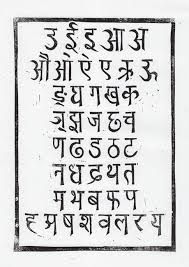 उ ई इ आ अ
औ ओ ऐ ए ऋ ऊ
ङ घ ग ख क
ञ झ ज छ च
ण ढ ड ठ ट
न ध द थ त
म भ ब फ प
ह ष श व ल र य